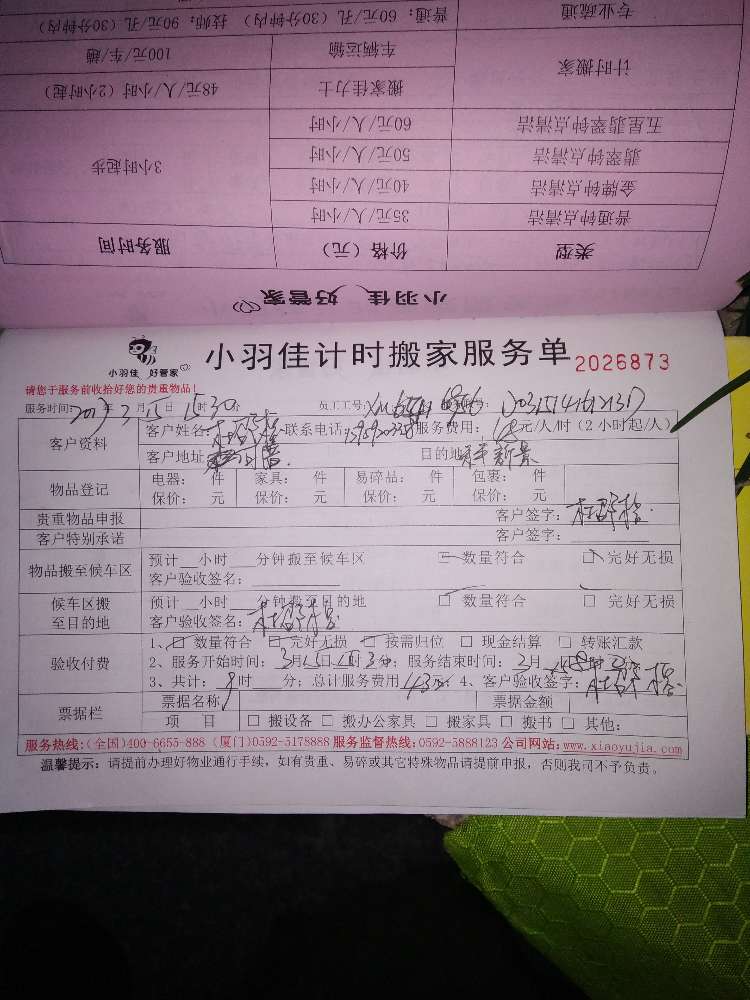 专业疏通 普通：60元/孔（30分钟内） 技师：90元/孔（30分钟内）
计时搬家 车辆运输 100元/车/趟
搬家佳力士 48元/人/小时（2小时起）
五星翡翠钟点清洁 60元/人/小时
翡翠钟点清洁 50元/人/小时 3小时起步
金牌钟点清洁 40元/人/小时
普通钟点清洁 35元/人/小时
类型 价格（元） 服务时间
小羽佳 好管家
小羽佳 好管家
小羽佳计时搬家服务单 2026873
请您于服务前收拾好您的贵重物品！
服务时间: 年3月15日15时30分 员工工号:
客户资料 客户姓名: 联系电话: 服务费用: 元/人/时（2小时起/人）
客户地址: 目的地: 新景
物品登记 电器： 件 家具： 件 易碎品： 件 包裹： 件
保价： 元 保价： 元 保价： 元 保价： 元
贵重物品申报 客户签字:
客户特别承诺 客户签字:
物品搬至候车区 预计__小时___分钟搬至候车区 □ 数量符合 □ 完好无损
客户验收签名：
候车区搬至目的地 预计__小时___分钟搬至目的地 □ 数量符合 □ 完好无损
客户验收签名：
验收付费 1、□ 数量符合 □ 完好无损 □ 按需归位 □ 现金结算 □ 转账汇款
2、服务开始时间：3月15日 时 分；服务结束时间：3月 日 时 分
3、共计： 时 分；总计服务费用 元；4、客户验收签字：
票据栏 票据名称 票据金额
项 目 □ 搬设备 □ 搬办公家具 □ 搬家具 □ 搬书 □ 其他：
服务热线：(全国)400-6655-888 (厦门)0592-5178888 服务监督热线：0592-5888123 公司网站：www.xiaoyujia.com
温馨提示：请提前办理好物业通行手续，如有贵重、易碎或其它特殊物品请提前申报，否则我司不予负责。